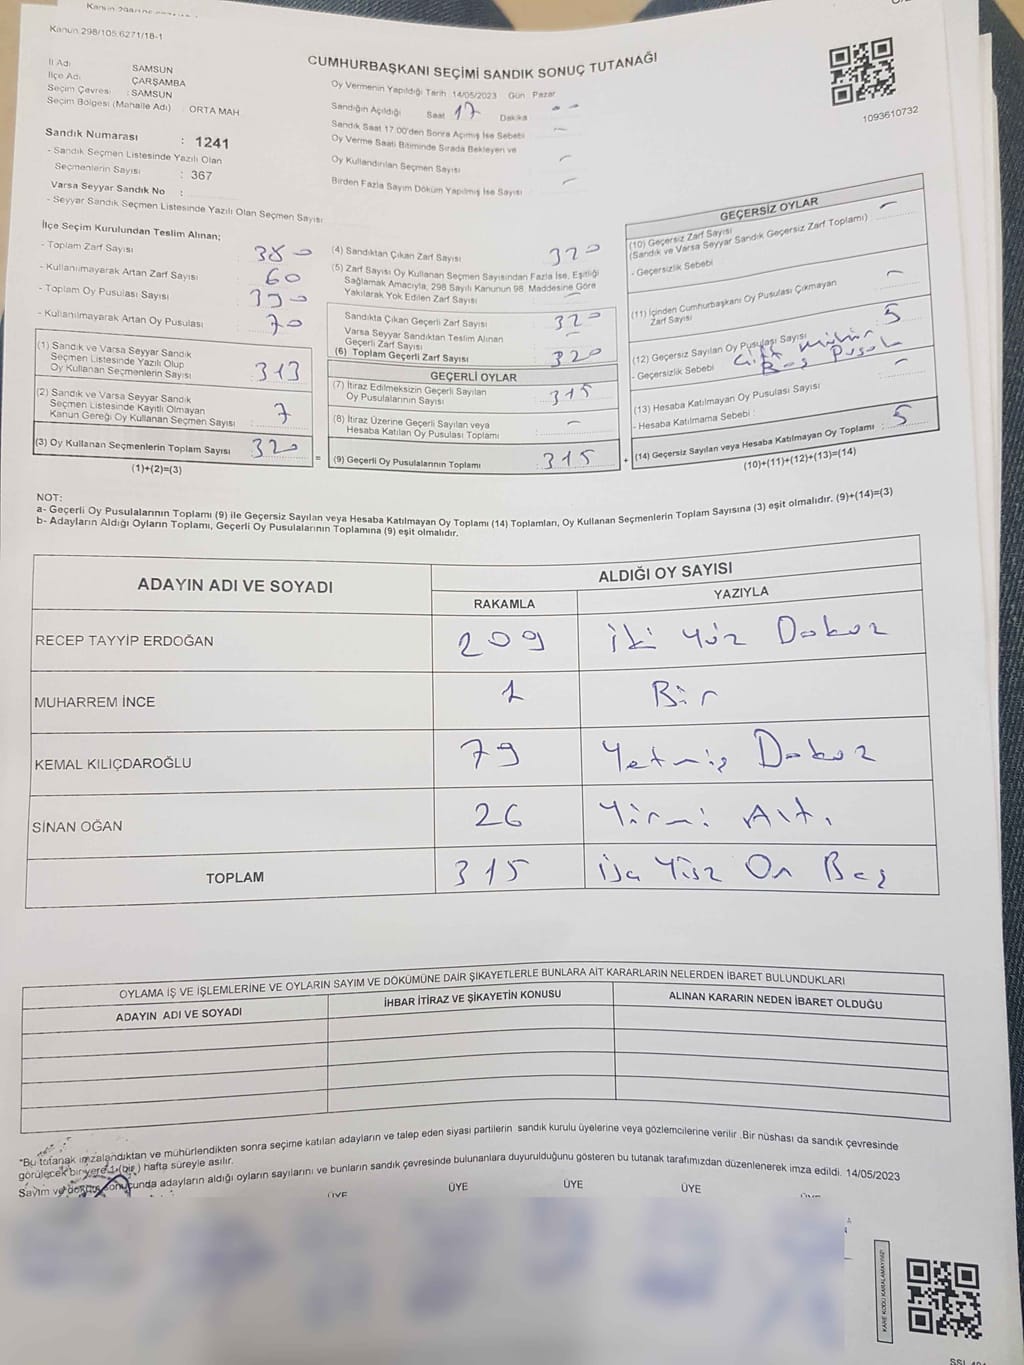 Kanun 298/105,6271/18-1
İl Adı SAMSUN
İlçe Adı ÇARŞAMBA
Seçim Çevresi : SAMSUN
Seçim Bölgesi (Mahalle Adı) : ORTA MAH
Sandık Numarası : 1241
- Sandık Seçmen Listesinde Yazılı Olan
Seçmenlerin Sayısı : 367
Varsa Seyyar Sandık No :
- Seyyar Sandık Seçmen Listesinde Yazılı Olan Seçmen Sayısı
CUMHURBAŞKANI SEÇİMİ SANDIK SONUÇ TUTANAĞI
Oy Vermenin Yapıldığı Tarih :14/05/2023 Gün : Pazar
Sandığın Açıldığı Saat 17 Dakika : --
Sandık Saat 17.00'den Sonra Açımış İse Sebebi -
Oy Verme Saati Bitiminde Sırada Bekleyen ve
Oy Kullandırılan Seçmen Sayısı -
Birden Fazla Sayım Döküm Yapılmış İse Sayısı -
1093610732
İlçe Seçim Kurulundan Teslim Alınan;
- Toplam Zarf Sayısı 380
- Kullanılmayarak Artan Zarf Sayısı 60
- Toplam Oy Pusulası Sayısı 390
- Kullanılmayarak Artan Oy Pusulası 70
(1) Sandık ve Varsa Seyyar Sandık
Seçmen Listesinde Yazılı Olup
Oy Kullanan Seçmenlerin Sayısı 313
(2) Sandık ve Varsa Seyyar Sandık
Seçmen Listesinde Kayıtlı Olmayan
Kanun Gereği Oy Kullanan Seçmen Sayısı 7
(3) Oy Kullanan Seçmenlerin Toplam Sayısı 320
(1)+(2)=(3)
=
(4) Sandıktan Çıkan Zarf Sayısı 320
(5) Zarf Sayısı Oy Kullanan Seçmen Sayısından Fazla İse, Eşitliği
Sağlamak Amacıyla, 298 Sayılı Kanunun 98. Maddesine Göre
Yakılarak Yok Edilen Zarf Sayısı -
Sandıkta Çıkan Geçerli Zarf Sayısı 320
Varsa Seyyar Sandıktan Teslim Alınan
Geçerli Zarf Sayısı -
(6) Toplam Geçerli Zarf Sayısı 320
GEÇERLİ OYLAR
(7) İtiraz Edilmeksizin Geçerli Sayılan
Oy Pusulalarının Sayısı 315
(8) İtiraz Üzerine Geçerli Sayılan veya
Hesaba Katılan Oy Pusulası Toplamı -
(9) Geçerli Oy Pusulalarının Toplamı 315
+
GEÇERSİZ OYLAR
(10) Geçersiz Zarf Sayısı -
(Sandık ve Varsa Seyyar Sandık Geçersiz Zarf Toplamı)
- Geçersizlik Sebebi
(11) İçinden Cumhurbaşkanı Oy Pusulası Çıkmayan
Zarf Sayısı -
(12) Geçersiz Sayılan Oy Pusulası Sayısı 5
- Geçersizlik Sebebi Çift Mühür
Boş Pusula
(13) Hesaba Katılmayan Oy Pusulası Sayısı -
- Hesaba Katılmama Sebebi :
(14) Geçersiz Sayılan veya Hesaba Katılmayan Oy Toplamı : 5
(10)+(11)+(12)+(13)=(14)
NOT:
a- Geçerli Oy Pusulalarının Toplamı (9) ile Geçersiz Sayılan veya Hesaba Katılmayan Oy Toplamı (14) Toplamları, Oy Kullanan Seçmenlerin Toplam Sayısına (3) eşit olmalıdır. (9)+(14)=(3)
b- Adayların Aldığı Oyların Toplamı, Geçerli Oy Pusulalarının Toplamına (9) eşit olmalıdır.
ADAYIN ADI VE SOYADI
ALDIĞI OY SAYISI
RAKAMLA YAZIYLA
RECEP TAYYİP ERDOĞAN 209 İki Yüz Dokuz
MUHARREM İNCE 1 Bir
KEMAL KILIÇDAROĞLU 79 Yetmiş Dokuz
SİNAN OĞAN 26 Yirmi Altı
TOPLAM 315 Yüz On Beş
OYLAMA İŞ VE İŞLEMLERİNE VE OYLARIN SAYIM VE DÖKÜMÜNE DAİR ŞİKAYETLERLE BUNLARA AİT KARARLARIN NELERDEN İBARET BULUNDUKLARI
ADAYIN ADI VE SOYADI İHBAR İTİRAZ VE ŞİKAYETİN KONUSU ALINAN KARARIN NEDEN İBARET OLDUĞU
*Bu tutanak imzalandıktan ve mühürlendikten sonra seçime katılan adayların ve talep eden siyasi partilerin sandık kurulu üyelerine veya gözlemcilerine verilir .Bir nüshası da sandık çevresinde
görülecek bir yere 1 (bir) hafta süreyle asılır.
Sayım ve döküm sonucunda adayların aldığı oyların sayılarını ve bunların sandık çevresinde bulunanlara duyurulduğunu gösteren bu tutanak tarafımızdan düzenlenerek imza edildi. 14/05/2023
ÜYE ÜYE ÜYE ÜYE
KARE KODU KARALAMAYINIZ!